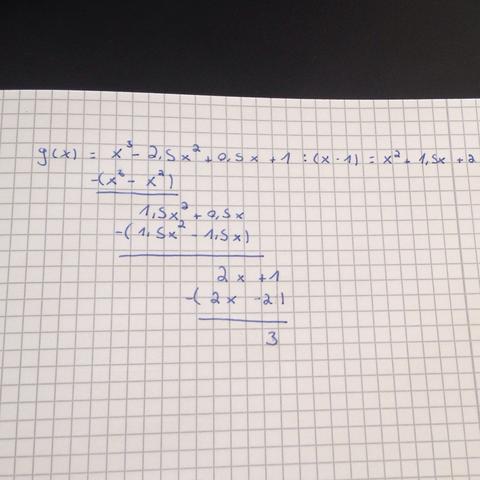 g(x) = x³ - 2,5x² + 0,5x + 1 : (x - 1) = x² + 1,5x + 2
-(x³ - x²)
1,5x² + 0,5x
-(1,5x² - 1,5x)
2x + 1
-(2x - 2)
3